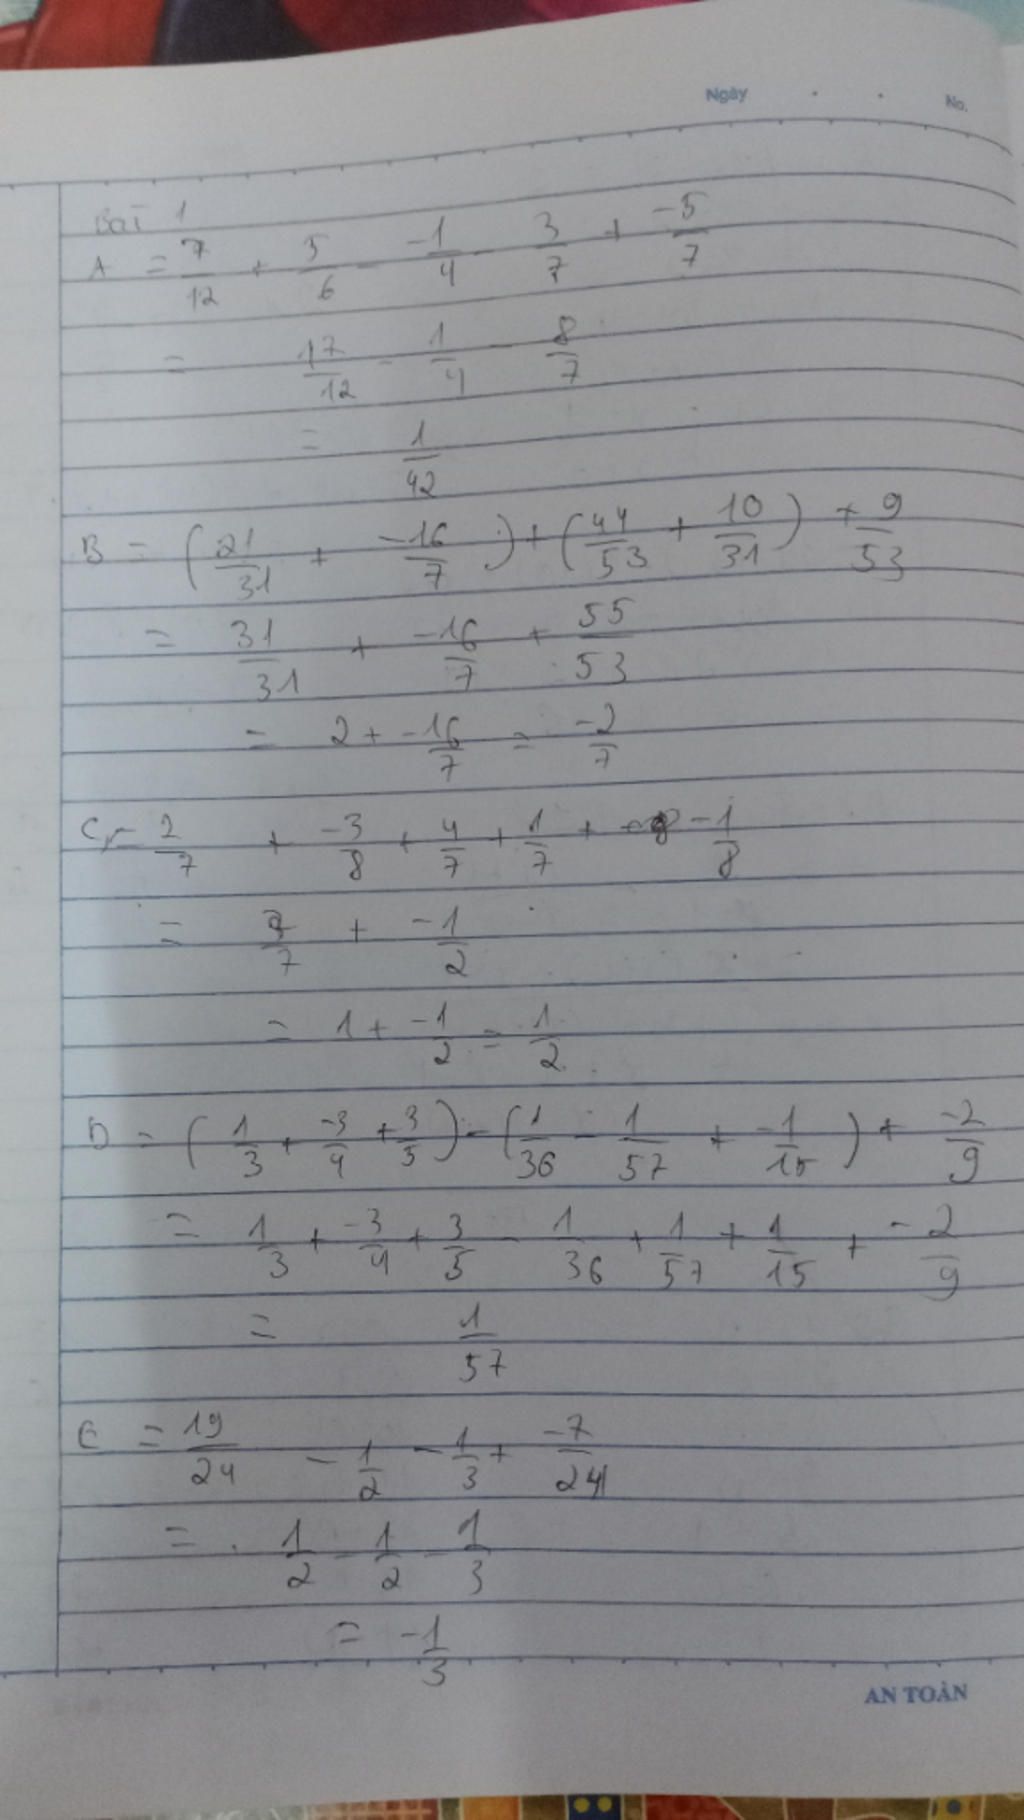 Ngày . . No.
Bài 1
A = 7/12 + 5/6 - -1/4 - 3/7 + -5/7
= 17/12 - 1/4 - 8/7
= 1/42
B = (21/31 + -16/7) + (44/53 + 10/31) + 9/53
= 31/31 + -16/7 + 55/53
= 2 + -16/7 = -2/7
C, = 2/7 + -3/8 + 4/7 + 1/7 + -1/8
= 7/7 + -1/2
= 1 + -1/2 = 1/2
D = (1/3 + -3/4 + 3/5) - (1/36 - 1/57 + -1/15) + -2/9
= 1/3 + -3/4 + 3/5 - 1/36 + 1/57 + 1/15 + -2/9
= 1/57
E = 19/24 - 1/2 - 1/3 + -7/24
= 1/2 - 1/2 - 1/3
= -1/3
AN TOÀN